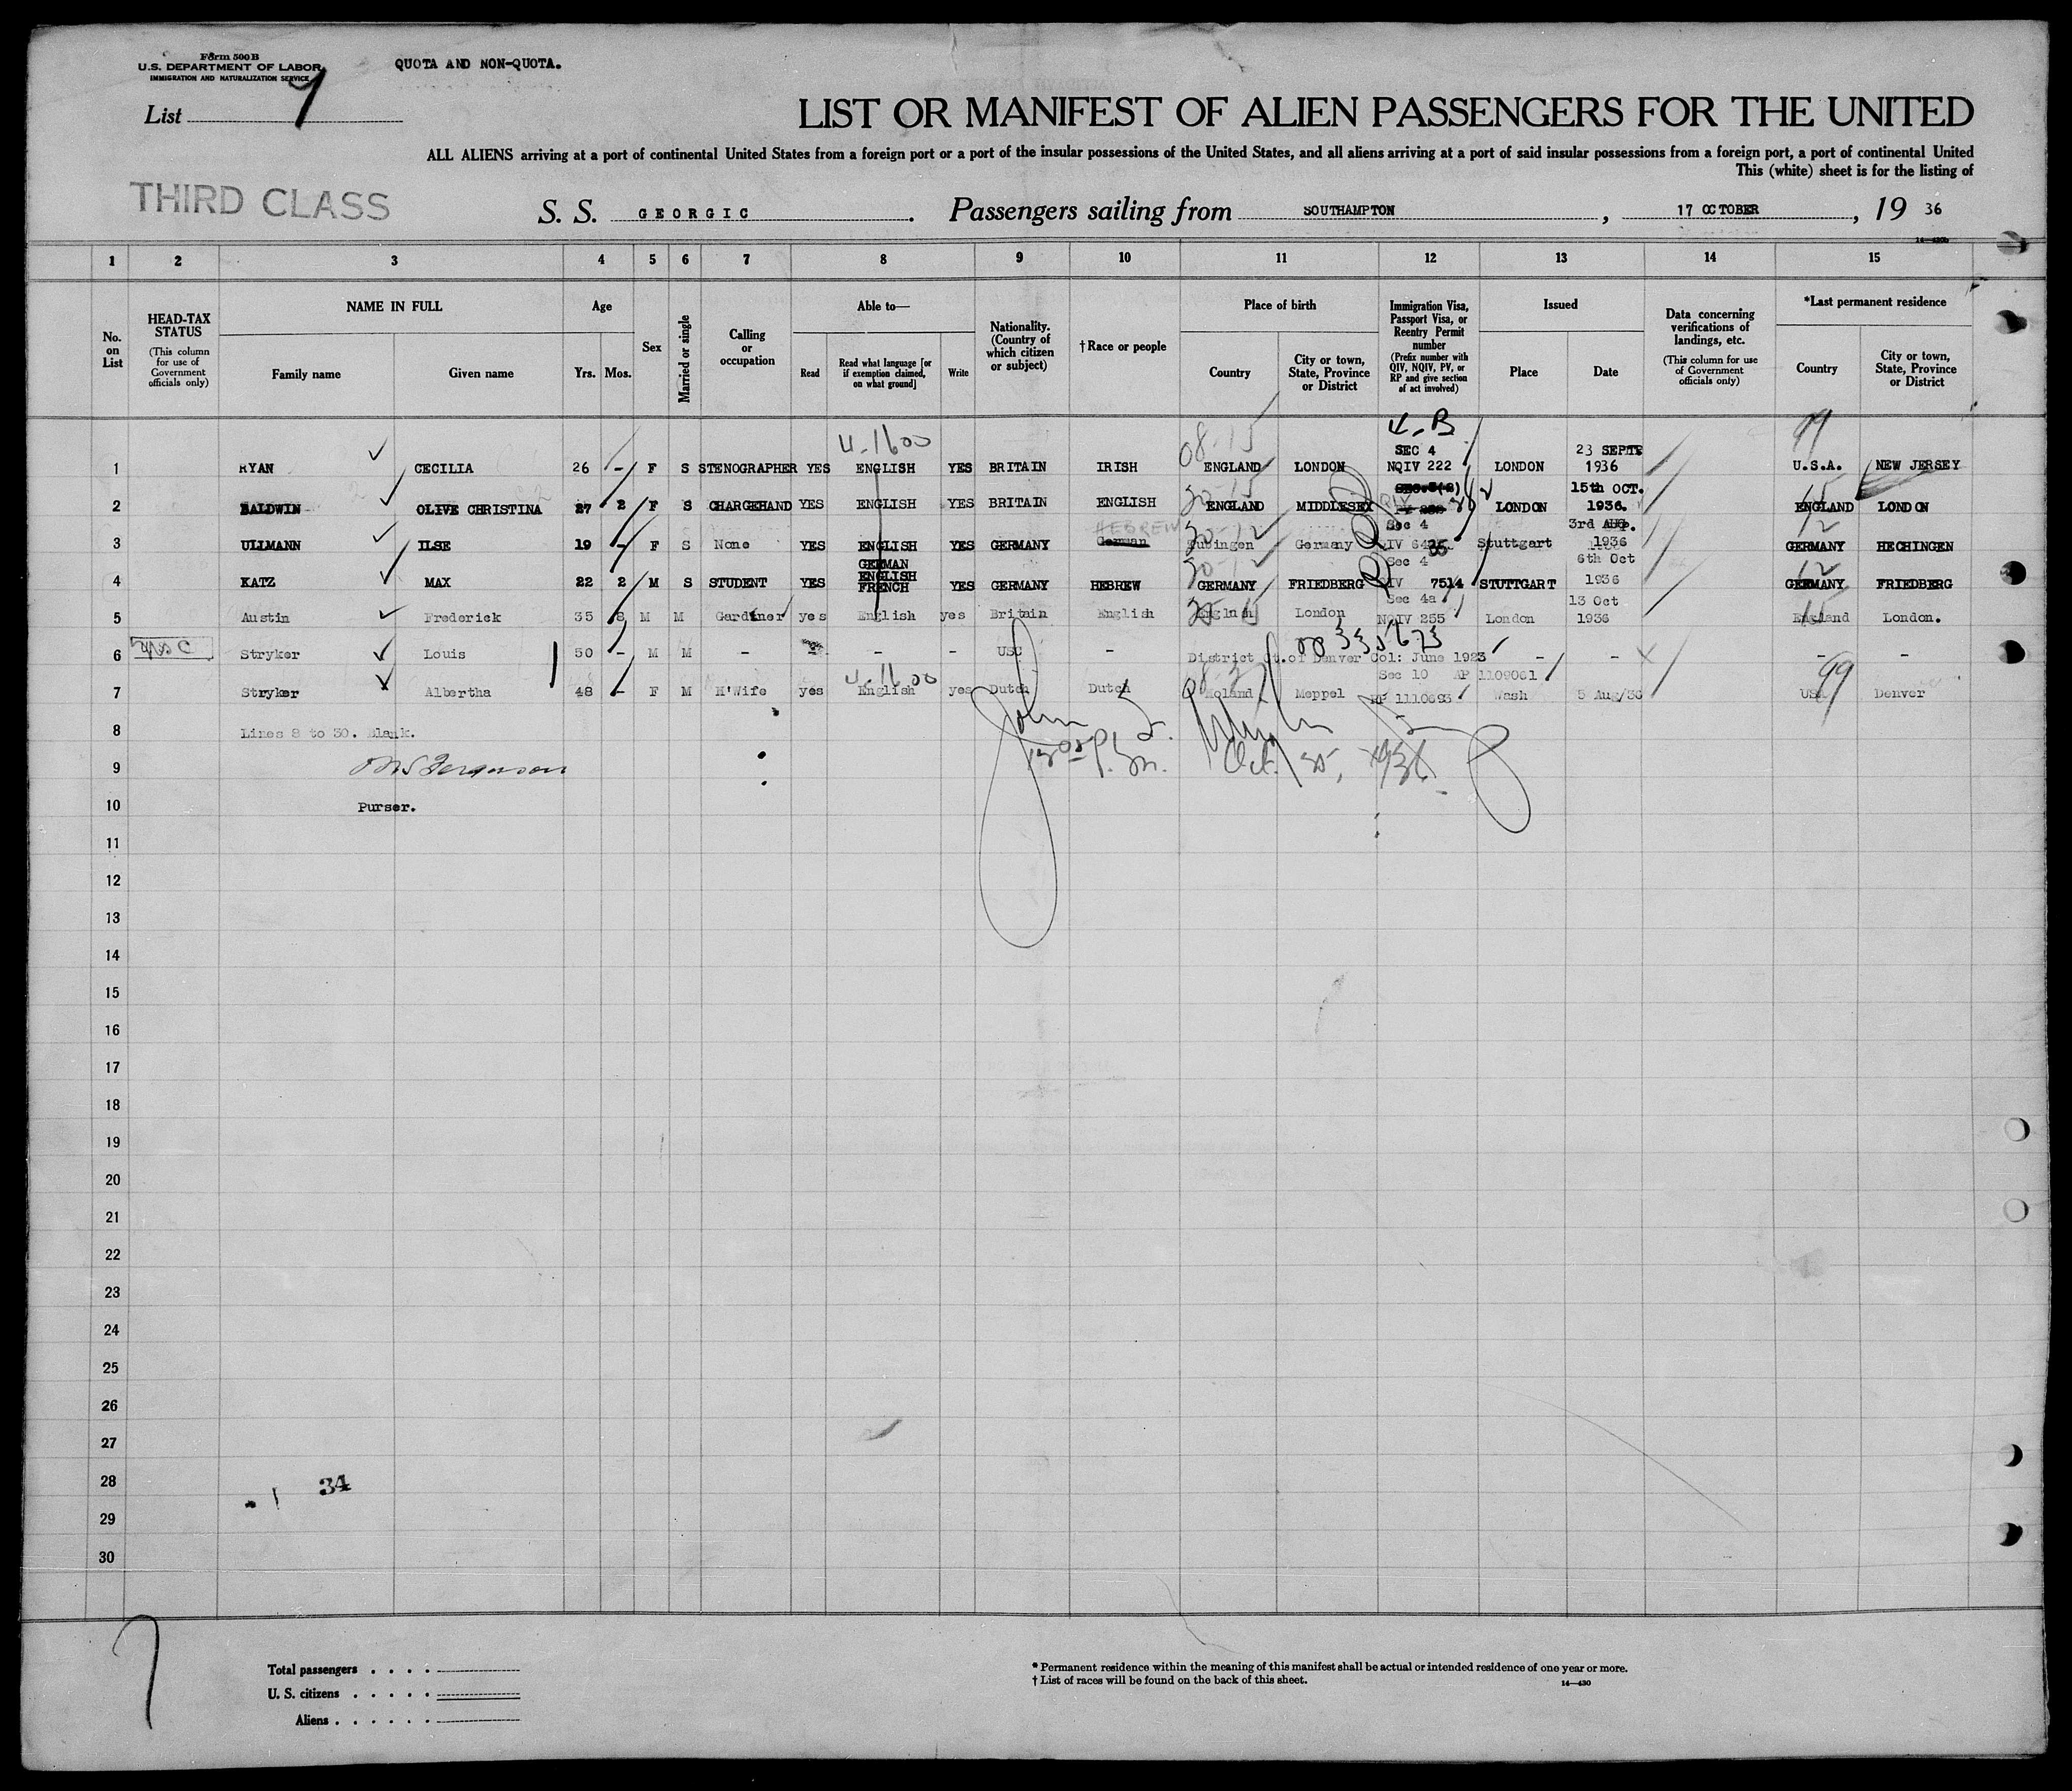 Form 500B
U.S. DEPARTMENT OF LABOR
IMMIGRATION AND NATURALIZATION SERVICE
QUOTA AND NON-QUOTA.
List 7
LIST OR MANIFEST OF ALIEN PASSENGERS FOR THE UNITED
ALL ALIENS arriving at a port of continental United States from a foreign port or a port of the insular possessions of the United States, and all aliens arriving at a port of said insular possessions from a foreign port, a port of continental United
This (white) sheet is for the listing of
THIRD CLASS
S. S. GEORGIC. Passengers sailing from SOUTHAMPTON, 17 OCTOBER, 19 36
14—430b
1 2 3 4 5 6 7 8 9 10 11 12 13 14 15
No. on List
HEAD-TAX STATUS (This column for use of Government officials only)
NAME IN FULL Family name Given name
Age Yrs. Mos.
Sex
Married or single
Calling or occupation
Able to— Read Read what language [or if exemption claimed, on what ground] Write
Nationality. (Country of which citizen or subject)
†Race or people
Place of birth Country City or town, State, Province or District
Immigration Visa, Passport Visa, or Reentry Permit number (Prefix number with QIV, NQIV, PV, or RP and give section of act involved)
Issued Place Date
Data concerning verifications of landings, etc. (This column for use of Government officials only)
*Last permanent residence Country City or town, State, Province or District
4-1600 08-15 4-B 99
SEC 4 23 SEPTR
1 RYAN CECILIA 26 - F S STENOGRAPHER YES ENGLISH YES BRITAIN IRISH ENGLAND LONDON NQIV 222 LONDON 1936 U.S.A. NEW JERSEY
SEC.3(2) 15th OCT.
2 BALDWIN OLIVE CHRISTINA 27 2 F S CHARGEHAND YES ENGLISH YES BRITAIN ENGLISH ENGLAND MIDDLESEX LONDON 1936. ENGLAND LONDON
HEBREW Sec 4 3rd
3 ULLMANN ILSE 19 - F S None YES ENGLISH YES GERMANY German Tubingen Germany QIV Stuttgart 1936 GERMANY HECHINGEN
GERMAN Sec 4 6th Oct
4 KATZ MAX 22 2 M S STUDENT YES ENGLISH FRENCH YES GERMANY HEBREW GERMANY FRIEDBERG QIV 7514 STUTTGART 1936 GERMANY FRIEDBERG
Sec 4a 13 Oct
5 Austin Frederick 35 8 M M Gardiner yes English yes Britain English England London NQIV 255 London 1936 England London.
6 Stryker Louis 50 - M M - - - USC - District Ct.of Denver Col: June 1923 - - - -
4-1600 Sec 10 RP 1109061 99
7 Stryker Albertha 48 - F M H'Wife yes English yes Dutch Dutch Holand Meppel RP 1110693 Wash 5 Aug/36 USA Denver
8 Lines 8 to 30. Blank.
9 Ferguson Oct. 25, 1936
10 Purser.
11
12
13
14
15
16
17
18
19
20
21
22
23
24
25
26
27
28 34
29
30
7
Total passengers . . . .
U. S. citizens . . . . .
Aliens . . . . . .
* Permanent residence within the meaning of this manifest shall be actual or intended residence of one year or more.
† List of races will be found on the back of this sheet. 14—430